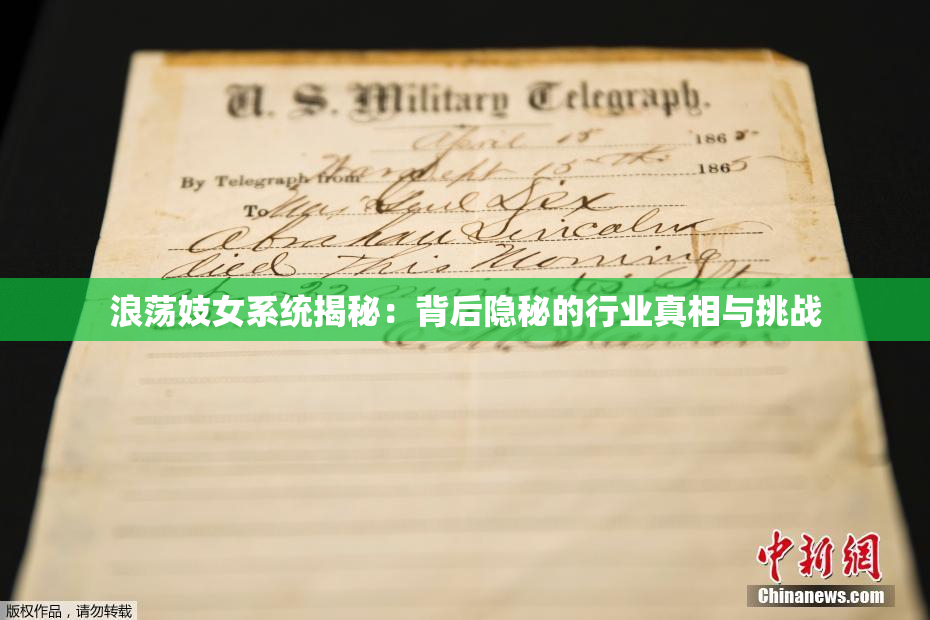 U. S. Military Telegraph.
April 15 1865
By Telegraph from War Dept 15th 1865
To Maj Genl Dix
Abraham Lincoln
died This Morning
22 minutes after
浪荡妓女系统揭秘：背后隐秘的行业真相与挑战
中新网
Chinanews.com
版权作品，请勿转载